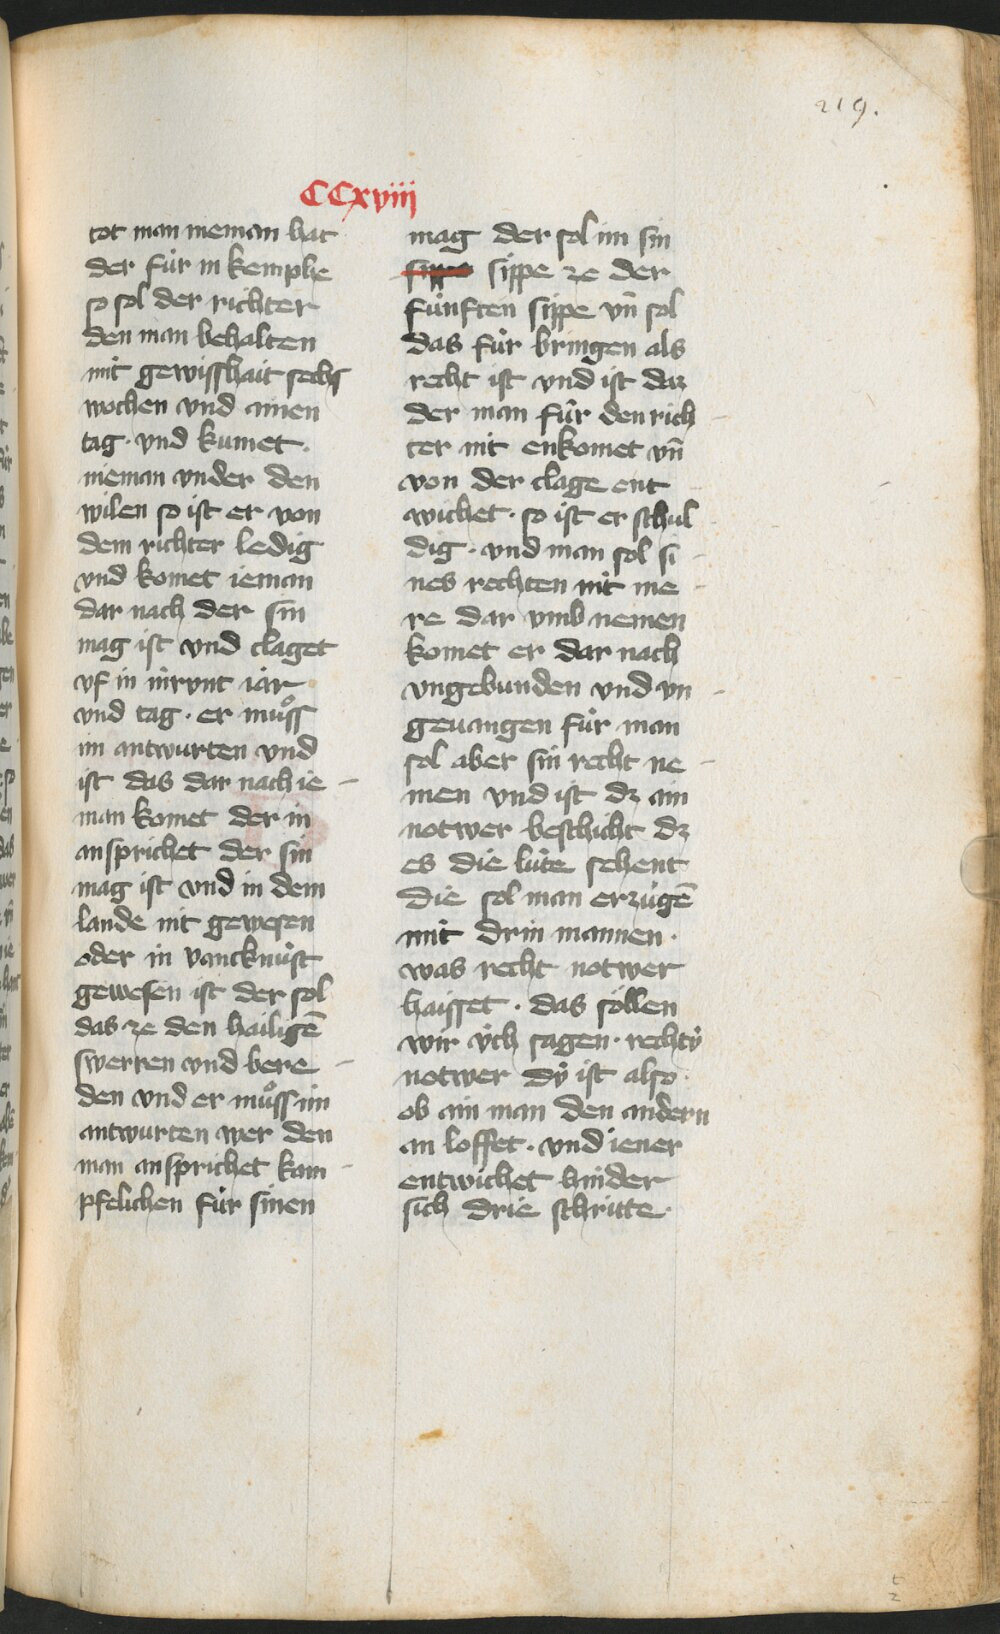 219.
CCxviii
tot man nieman hat
der für in kemphe
so sol der richter
den man behalten
mit gewisshait sechs
wochen vnd ainen
tag · vnd kumet ·
nieman vnder den
wilen so ist er von
dem richter ledig
vnd komet ieman
dar nach der sin
mag ist vnd claget
vf in inrvnt iar
vnd tag · er muͦss
im antwurten vnd
ist das dar nach ie
man komet der in
ansprichet der sin
mag ist vnd in dem
lande nit gewesen
oder in vancknüst
gewesen ist der sol
das ze den hailigē
swerren vnd bere
den vnd er muͦss im
antwurten wer den
man ansprichet kam
pfelichen für sinen
mag der sol im sin
sippe ze der
fünften sippe vn̄ sol
das für bringen als
recht ist vnd ist daz
der man für den rich
ter nit enkomet vn̄
von der clage ent
wichet · so ist er schul
dig · vnd man sol si
nes rechten nit me
re dar vmb nemen
komet er dar nach
vngebunden vnd vn
geuangen für man
sol aber sin recht ne
men vnd ist dz ain
notwer beschicht dz
es die lüte sehent
die sol man erzügē
mit drin mannen ·
was recht notwer
haisset · das söllen
wir ÿch sagen · rechtÿ
notwer dÿ ist also ·
ob ain man den andern
an loffet · vnd iener
entwichet hinder
sich drie schritte ·